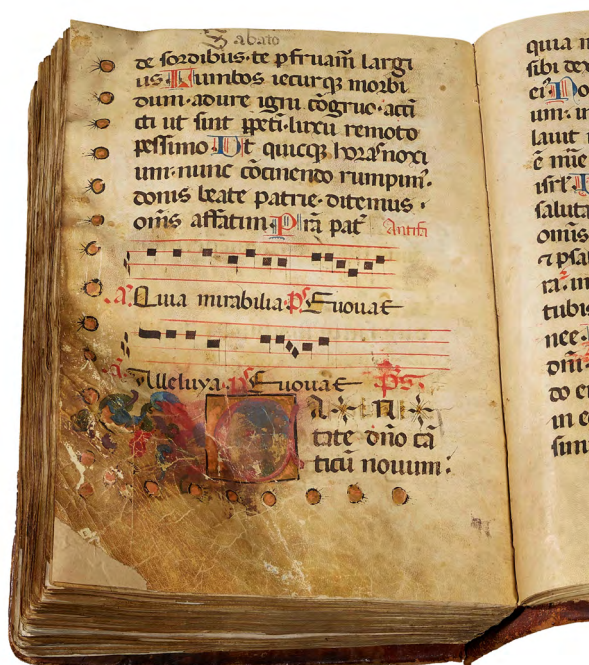 Sabato
de sordibus·te pfruam̄ largi
us·Lumbos iecurqȝ morbi
dum·adure igni cōgruo·acci
cti ut sint ppeti·luxu remoto
pessimo Ut quicqȝ horas noxi
um·nunc cōcinendo rumpim̄·
donis beate patrie·ditemus·
om̄s affatim Prā pat̄ Antifi
a. Quia mirabilia ps Euouae
a. Alleluya ps Euouae Ps.
CANT
tate dn̄o cā
ticū nouum:
quia
sibi dex
ei
um·
lauit
ē mīe
isrl·
saluta
om̄is
tubis
nee·
dn̄i
in